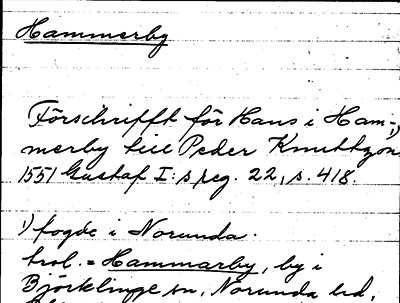 Hammerby
Förschrifft för Hans i Ham-
merby till Peder Knuttzon 1)
1551 Gustaf I:s reg. 22, s. 418.
1) fogde i Norunda.
trol. = Hammarby, by i
Björklinge sn, Norunda hd,